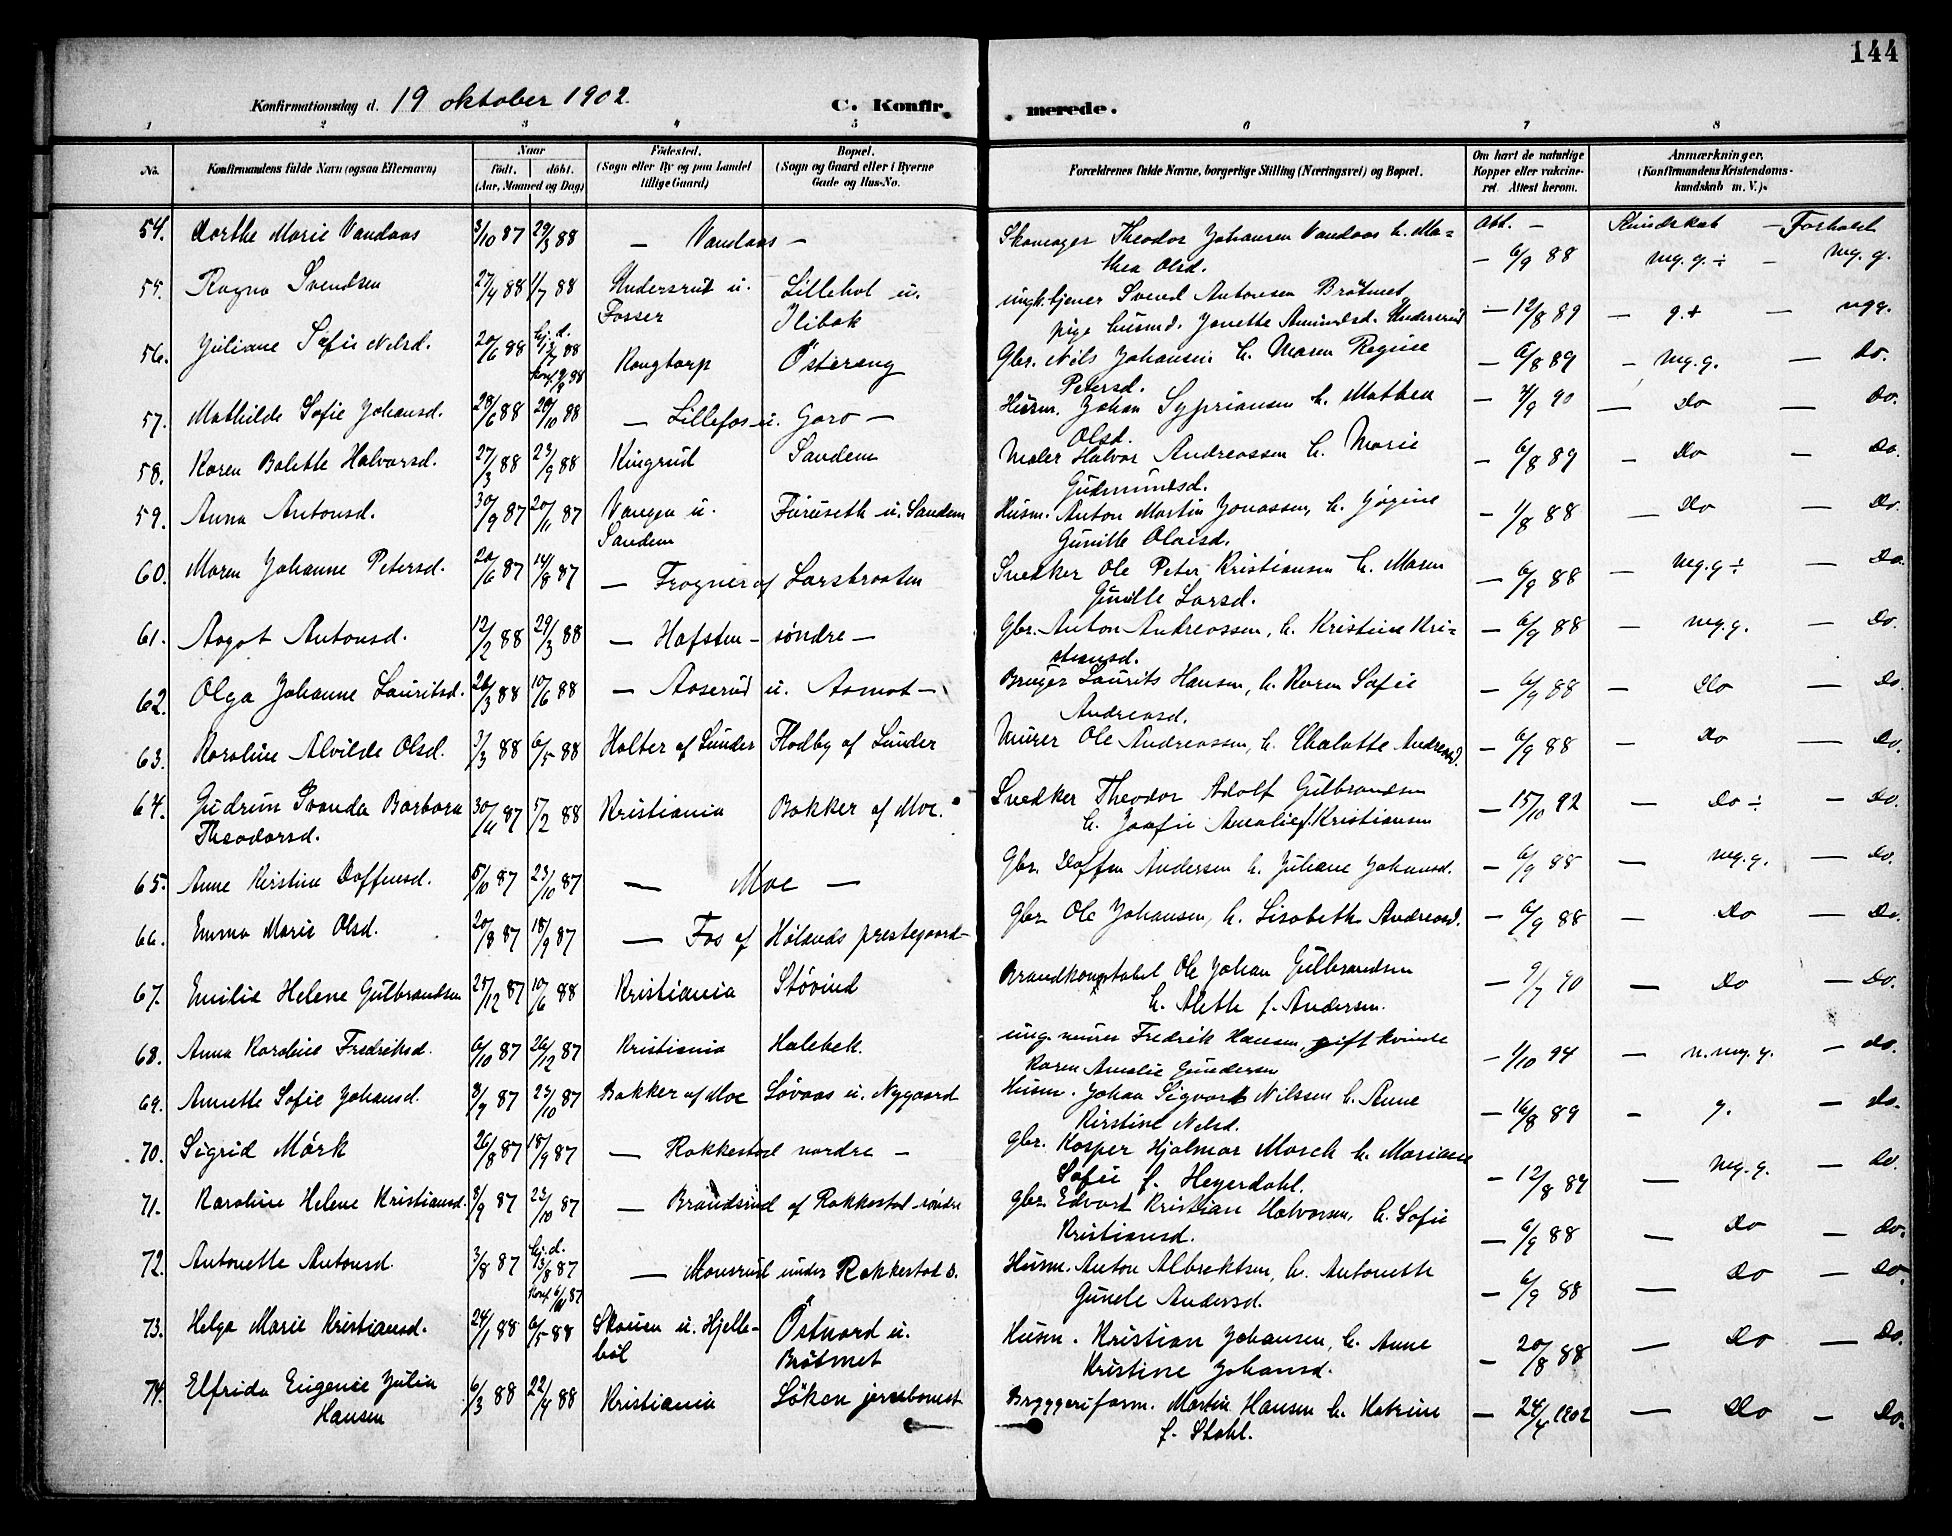 144
Konfirmationsdag d. 19 oktober 1902.
C. Konfir merede.
1 2 3 4 5 6 7 8
No. Konfirmandens fulde Navn (ogsaa Efternavn) Naar födt. döbt. (Aar, Maaned og Dag) Födested. (Sogn eller By og paa Landet tillige Gaard) Bopæl. (Sogn og Gaard eller i Byerne Gade og Hus-No. Forældrenes fulde Navne, borgerlige Stilling (Næringsvei) og Bopæl. Om havt de naturlige Kopper eller vakcineret. Attest herom. Anmærkninger. (Konfirmandens Kristendomskundskab m. V.).
Att. — Kundskab — Forhold
54. Dorthe Marie Vandaas 3/10 87 29/3 88 — Vandaas — Skomager Theodor Johansen Vandaas h. Ma=
thea Olsd. — 6/9 88 mg. g. ÷ — mg. g.
55. Ragna Svendsen 27/4 88 1/7 88 Undersrud u. Fosser Lillehol u. Ilibak ungk. tjener Svend Antonsen Brötmet,
pige husmd. Jonette Amundsd. Undersrud — 12/8 89 — g. + — mgg.
56. Juliane Sofie Nelsd. 20/6 88 hj. d. Gbr. Nils Johansen h. Maren Regine
Petersd. Kongtorp Östereng — 6/8 89 — mg. g. — Do.
57. Mathilde Sofie Johansd. 28/6 88 20/10 88 — Lillefos u. Garo — Husm. Johan Sypriansen h. Mathea
Olsd. — 4/9 90 — Do — Do.
58. Karen Bolette Halvorsd. 27/3 88 23/9 88 Kingrud Sandem Maler Halvor Andreassen h. Marie
Gudmundsd. — 6/8 89 — Do — Do.
59. Anna Antonsd. 30/9 87 20/11 87 Vangen u. Sandem Furuseth u. Sandem Husm. Anton Martin Jonassen, h. Jøgine
Gunille Olaisd. — 1/8 88 — Do — Do.
60. Maren Johanne Petersd. 20/6 87 14/8 87 — Frogner af Larsbraaten Snedker Ole Peter Kristiansen h. Maren
Gunille Larsd. — 6/9 88 — mg. g ÷ — Do
61. Aagot Antonsd. 12/2 88 29/3 88 — Hafsten — söndre — Gbr. Anton Andreassen, h. Kristine Kri=
stiansd. — 6/9 88 — mg. g. — Do.
62. Olga Johanne Lauritsd. 26/3 88 10/6 88 — Aaserud u. Aamot — Bruger Laurits Hansen, h. Karen Sofie
Andreasd. — 6/9 88 — Do — Do.
63. Karoline Alvilde Olsd. 3/3 88 6/5 88 Holter af Lunder Flodby af Lunder Murer Ole Andreassen, h. Chalotte Andreasd. — 6/9 88 — Do — Do.
64. Gudrun Svanda Barbara Theodorsd. 30/11 87 5/2 88 Kristiania Bakker af Moe. Snedker Theodor Adolf Gulbrandsen
h. Josefie Amalie f. Kristiansen — 15/10 92 — Do ÷ — Do.
65. Anne Kirstine Doffensd. 5/10 87 23/10 87 — Moe — Gbr. Doffen Andersen h. Juliane Johansd. — 6/9 88 — mg. g. — Do.
66. Emma Marie Olsd. 20/8 87 18/9 87 — Fos af Hølands prestegaard — Gbr. Ole Johansen, h. Lisabeth Andreasd. — 6/9 88 — Do — Do.
67. Emilie Helene Gulbrandsen 25/12 87 10/6 88 Kristiania Stövind Brandkonstabel Ole Johan Gulbrandsen
h. Aleth f. Andersen. — 9/7 90 — Do — Do.
68. Anna Karoline Fredriksd. 6/10 87 26/12 87 Kristiania Holebek. ung. murer Fredrik Hansen, gift kvinde
Karen Amalie Gundersen — 1/10 94 — n. mg. g. — do.
69. Annette Sofie Johansd. 3/9 87 23/10 87 Bakker af Moe Lövaas u. Nygaard Husm. Johan Sigvart Nilssen h. Anne
Kirstine Nelsd. — 16/8 89 — g. — do.
70. Sigrid Mörk 26/8 87 18/9 87 — Rakkestad nordre — gbr. Kasper Hjalmar Morch h. Mariane
Sofie f. Heyerdahl. — 12/8 89 — mg. g. — Do.
71. Karoline Helene Kristiansd. 3/9 87 23/10 87 — Brandsrud af Rakkestad söndre gbr. Edvart Kristian Halvorsen, h. Sofie
Kristiansd. — 6/9 88 — Do — Do.
72. Antonette Antonsd. 3/8 87 hj. d. 13/8 87 — Monsrud under Rakkestad s. Husm. Anton Albrektsen, h. Antonette
Gunele Andersd. — 6/9 88 — Do — Do.
73. Helga Marie Kristiansd. 24/1 88 6/5 88 Skouen u. Hjelle-
böl Östnord u. Brötmet Husm. Kristian Johansen, h. Anne
Kristine Johansd. — 20/8 88 — Do — Do.
74. Elfrida Eugenie Julia Hansen 6/3 88 22/4 88 Kristiania Löken Bryggeriform. Martin Hansen h. Katrine
f. Stahl. — 24/4 1902 — Do — Do.